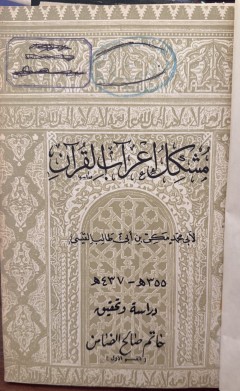 مشكل إعراب القرآن
لأبي محمد مكي بن أبي طالب القيسي
٣٥٥هـ - ٤٣٧هـ
دراسة وتحقيق
حاتم صالح الضامن
القسم الأول